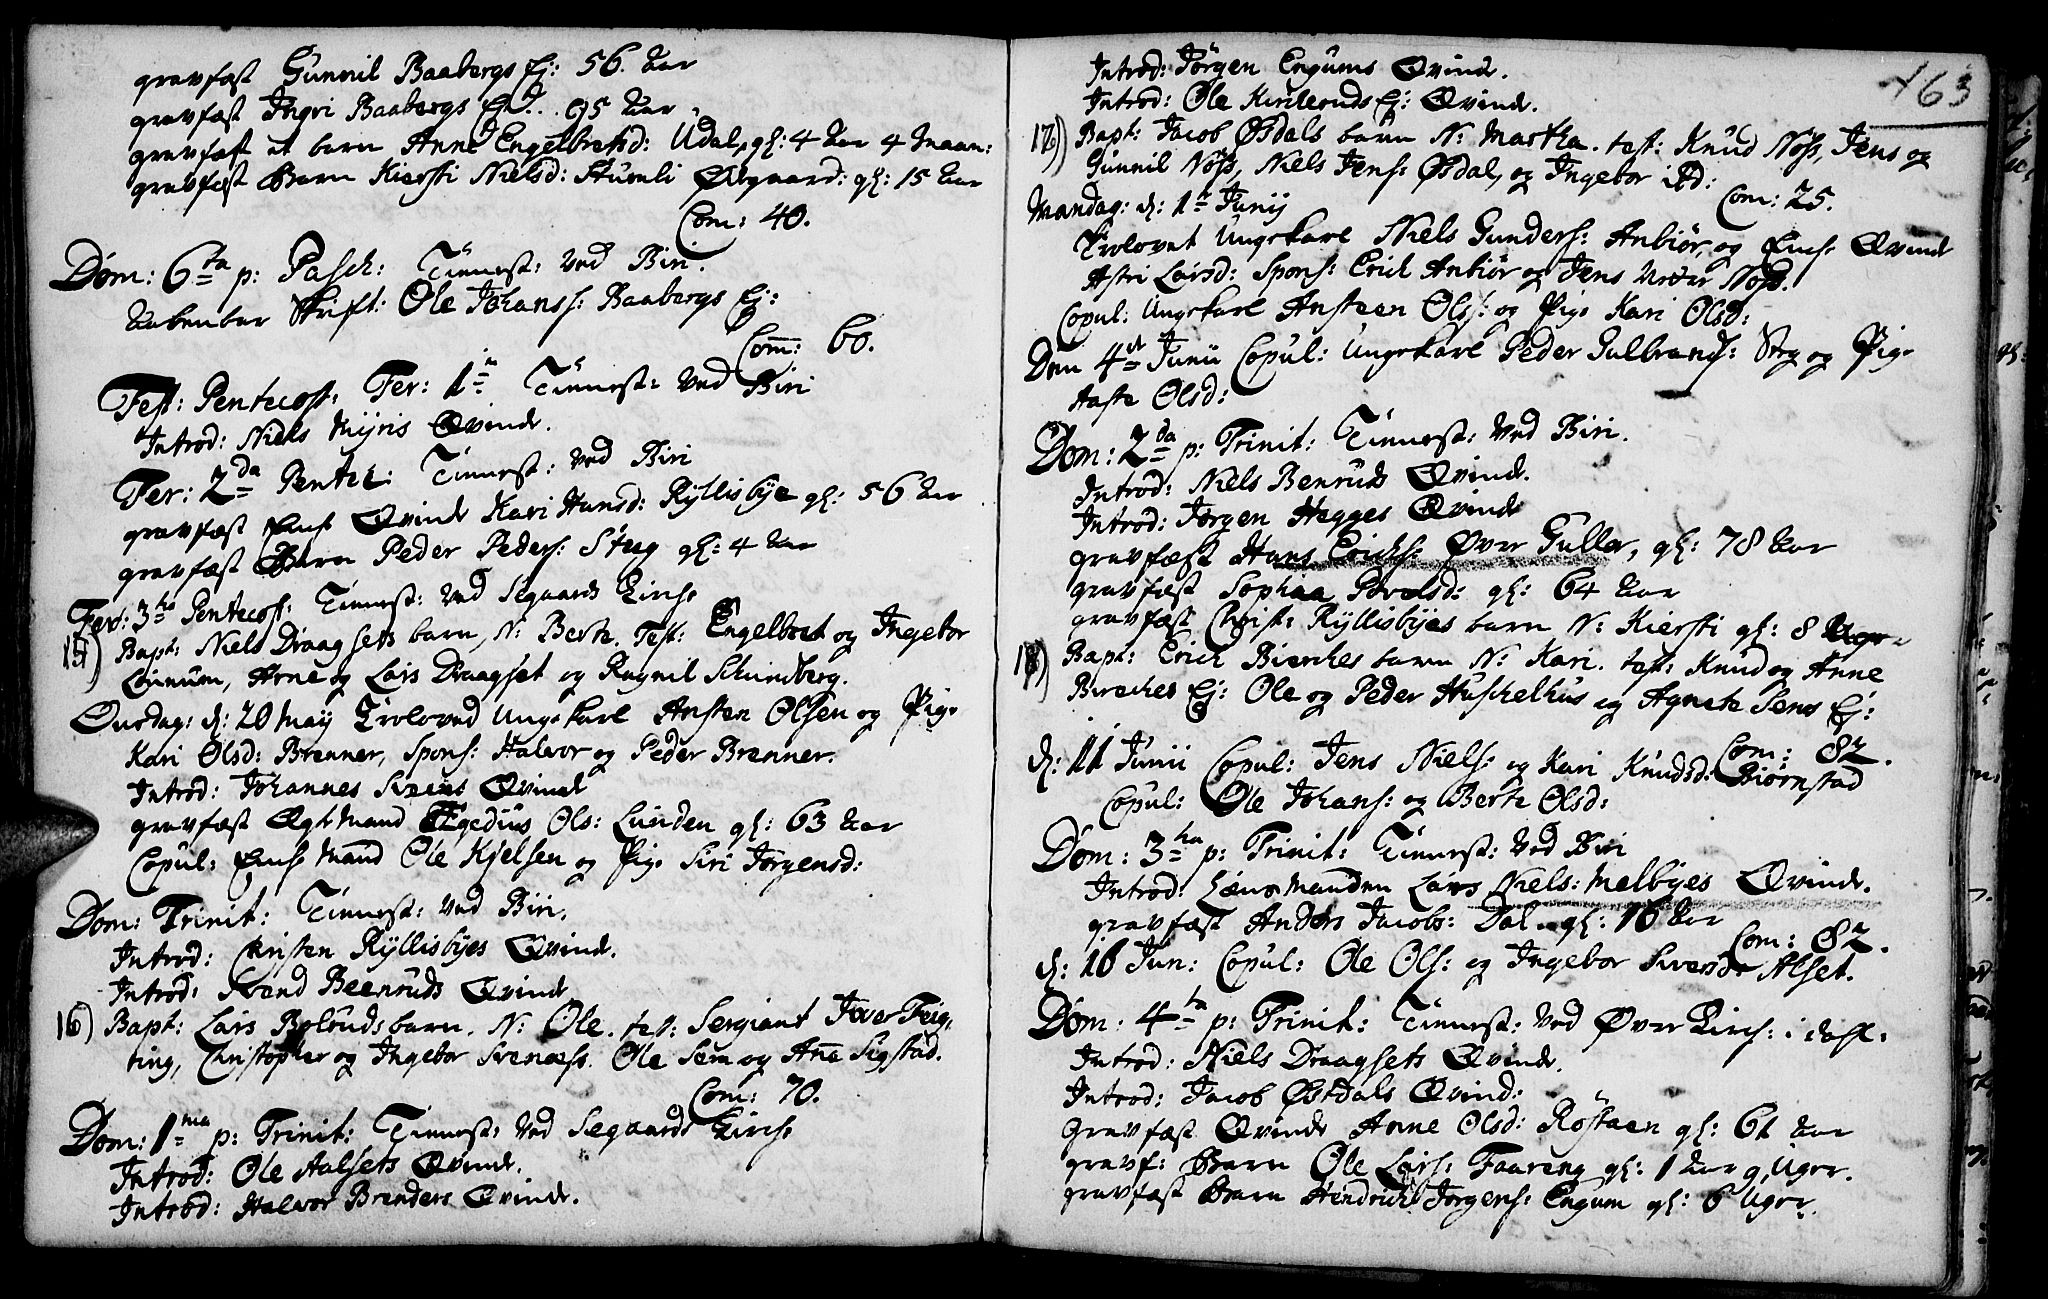 gravfæst Gunnil Baabergs Ej: 56. Aar
gravfæst Ingri Baabergs Ed. 95 Aar
gravfæst et barn Anne Engelbretsd: Udal, gl: 4 Aar 4 Maan:
gravfæst Barn Kiersti Nielsd: Stumli Øvgaard: gl: 15 Aar
Com: 40.
Dom: 6ta p: Pasch: Tienest: ved Biri.
Aabenbar Skrift: Ole Johanss: Baabergs Ej:
Com: 60.
Fest: Pentecost: Fer: 1a Tienest: ved Biri
Introd: Niels Myris Qvinde.
Fer: 2da Pentec: Tienest: ved Biri
gravfæst Enke Qvinde Kari Hansd: Ryllisbye gl: 56 Aar
gravfæst Barn Peder Peders: Steeg gl: 4 Aar
Fer: 3tia Pentecost: Tienest: ved Segaards Kirche
15) Bapt: Niels Draagsets barn, N: Berte. Test: Engelbret og Ingebor
Lunum, Arne og Lars Draagset og Ragnil Schundberg.
Onsdag: d: 20 Maij Troloved Ungekarl Ansten Olsen og Pige
Kari Olsd: Brenner, Spons: Halvor og Peder Brenner.
Introd: Johannes Svenes Qvinde
gravfæst Ægte Mand Egedius Ols: Lunden gl: 63 Aar
Copul: Enke Mand Ole Kjelsen og Pige Siri Jørgensd:
Dom: Trinit: Tienest: ved Biri.
Introd: Christen Ryllisbyes Qvinde.
Introd: Svend Beenruds Qvinde
16) Bapt: Lars Bolsunds barn. N: Ole. test: Sergiant Iver Feig-
ting, Christopher og Ingebor Svenæss. Ole Sem og Aña Sigstad.
Com: 70.
Dom: 1ma p: Trinit: Tienest: ved Segaards Kirche
Introd: Ole Aalsets Qvinde.
Introd: Halvor Brenders Qvinde.
163
Introd: Jörgen Engums Qvinde.
Introd: Ole Kirkeruds Ej: Qvinde.
17) Bapt: Jacob Øsdals barn N: Martha. test: Knud Nöss, Jens og
Gunnil Nöss, Niels Jens: Øsdal, og Ingebor ibd:
Com: 25.
Mandag: d: 1te Junij
Trolovet Ungekarl Niels Gunders: Anbiör, og Enke Qvinde
Astri Larsd: Spons: Erich Anbiör og Jens Nedre Nöss.
Copul: Ungekarl Ansteen Ols: og Pige Kari Olsd:
Den 4de Junii Copul: Ungekarl Peder Gulbrands: Steg og Pige
Aaste Olsd:
Dom: 2da p: Trinit: Tienest: ved Biri.
Introd: Niels Benruds Qvinde.
Introd: Jørgen Hegges Qvinde
gravfæst Hans Erichs: Øvre Gullor, gl: 78 Aar
gravfæst Sophia Povelsd: gl: 64 Aar
gravfæst Christ: Ryllisbyes barn N: Kiersti gl: 8 Uger
18) Bapt: Erich Bierches barn N: Kari. test: Knud og Anne
Birches Ej: Ole og Peder Huschelhus og Agnete Sems Ej:
Com: 82.
d: 11 Junii Copul: Jens Niels: og Kari Knudsd: Biørnstad
Copul: Ole Johans: og Berte Olsd:
Dom: 3tia p: Trinit: Tienest: ved Biri
Introd: Lænsmanden Lars Niels: Melbyes Qvinde.
gravfæst Anders Jacobs: Dal. gl: 16 Aar
Com: 82.
d: 16 Jun: Copul: Ole Ols: og Ingebor Sversdr Alset.
Dom: 4ta p: Trinit: Tienest: ved Øvre Kirch: i
Introd: Niels Draagsets Qvinde.
Introd: Jacob Østdals Qvinde:
Gravfæst Qvinde Anne Olsd: Röstaen gl: 61 Aar
gravf: Barn Ole Lars: Faareng gl: 1 Aar 9 Uger.
gravfæst Barn Hendrich Jørgens: Engum gl: 6 Uger.